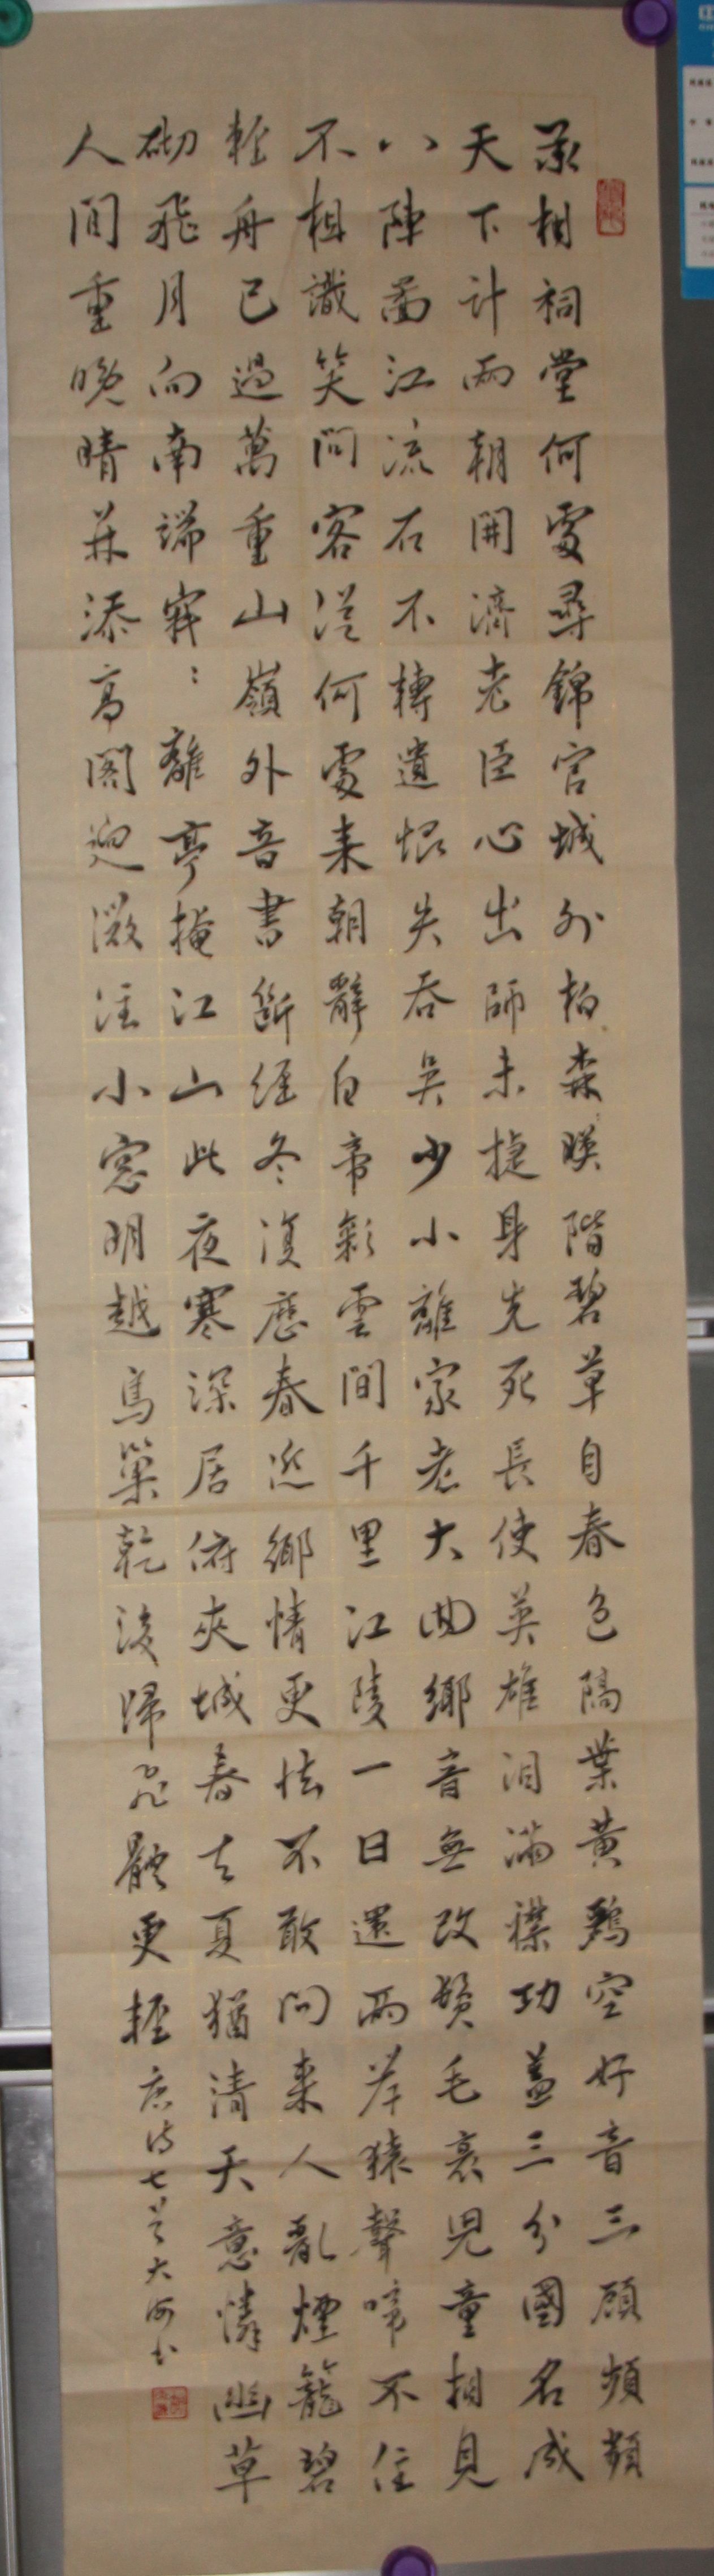 丞相祠堂何處尋錦官城外柏森:映階碧草自春色隔葉黃鸝空好音三顧頻頻
天下計兩朝開濟老臣心出師未捷身先死長使英雄泪滿襟功蓋三分國名成
八陣圖江流石不轉遺恨失吞吳少小離家老大回鄉音無改鬢毛衰兒童相見
不相識笑問客從何處來朝辭白帝彩雲間千里江陵一日還兩岸猿聲啼不住
輕舟已過萬重山嶺外音書斷經冬復歷春近鄉情更怯不敢問來人亂煙籠碧
砌飛月向南端寂:離亭掩江山此夜寒深居俯夾城春去夏猶清天意憐幽草
人間重晚晴并添高閣迥微注小窗明越鳥巢乾後歸飛體更輕唐詩七首大海书